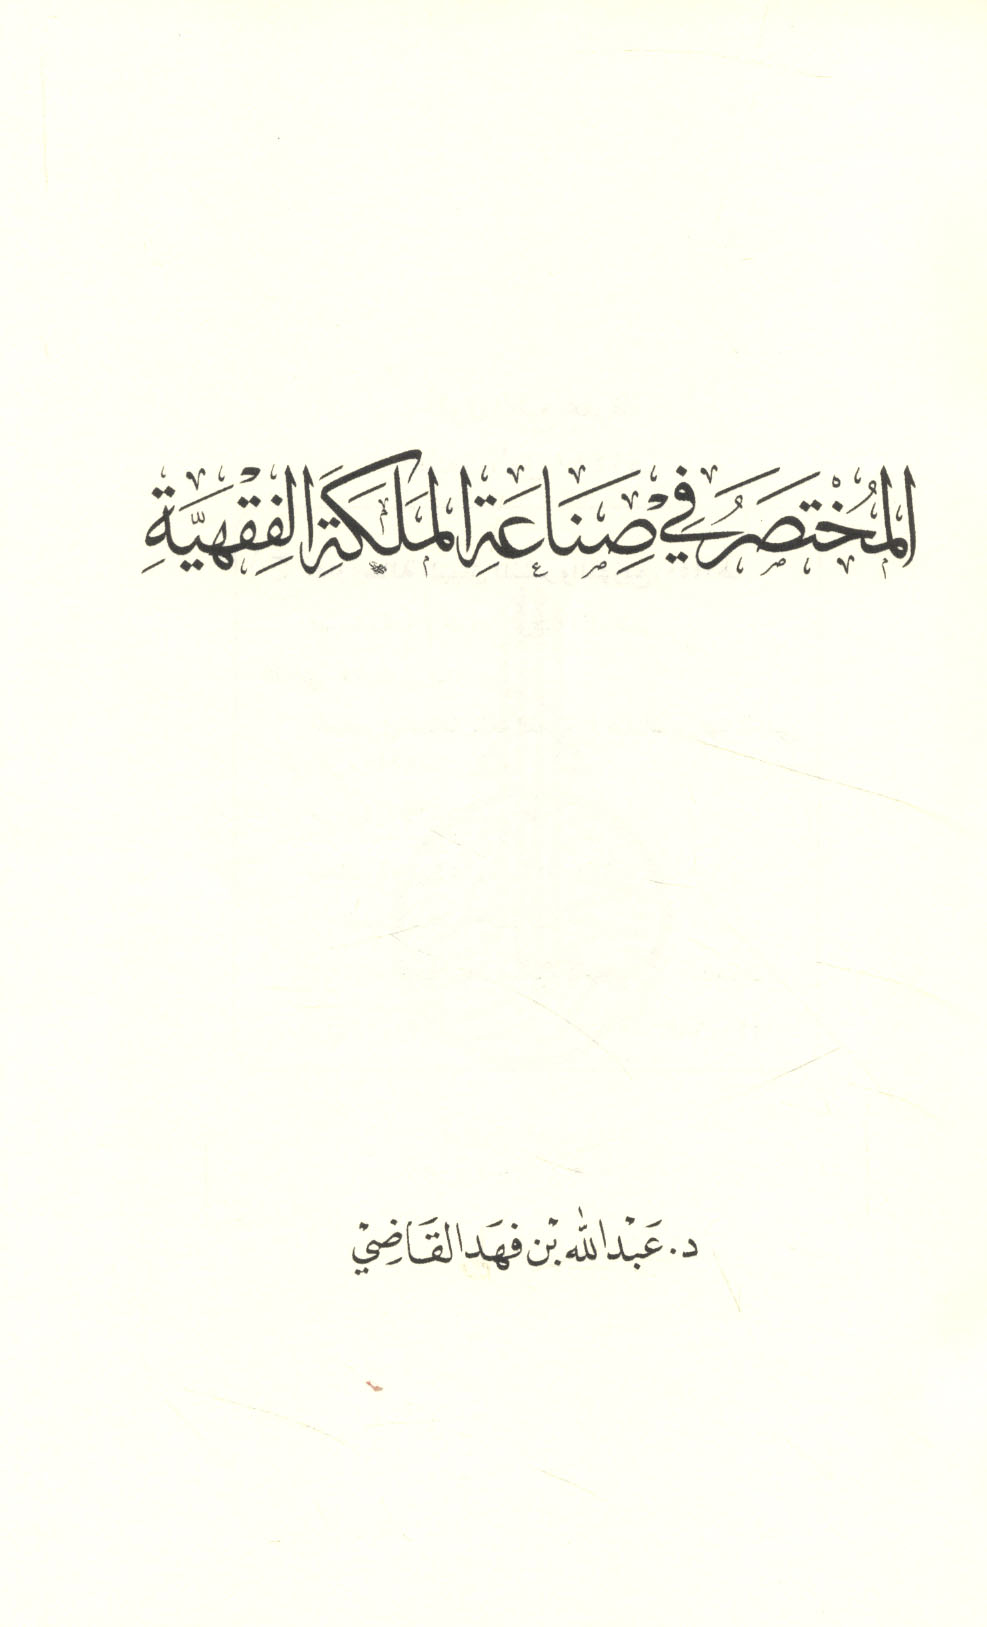 المُخْتَصَرُ فِيْ صِنَاعَةِ المَلَكَةِ الفِقْهِيَّةِ
د. عَبْدالله بْن فهَد القَاضِيْ